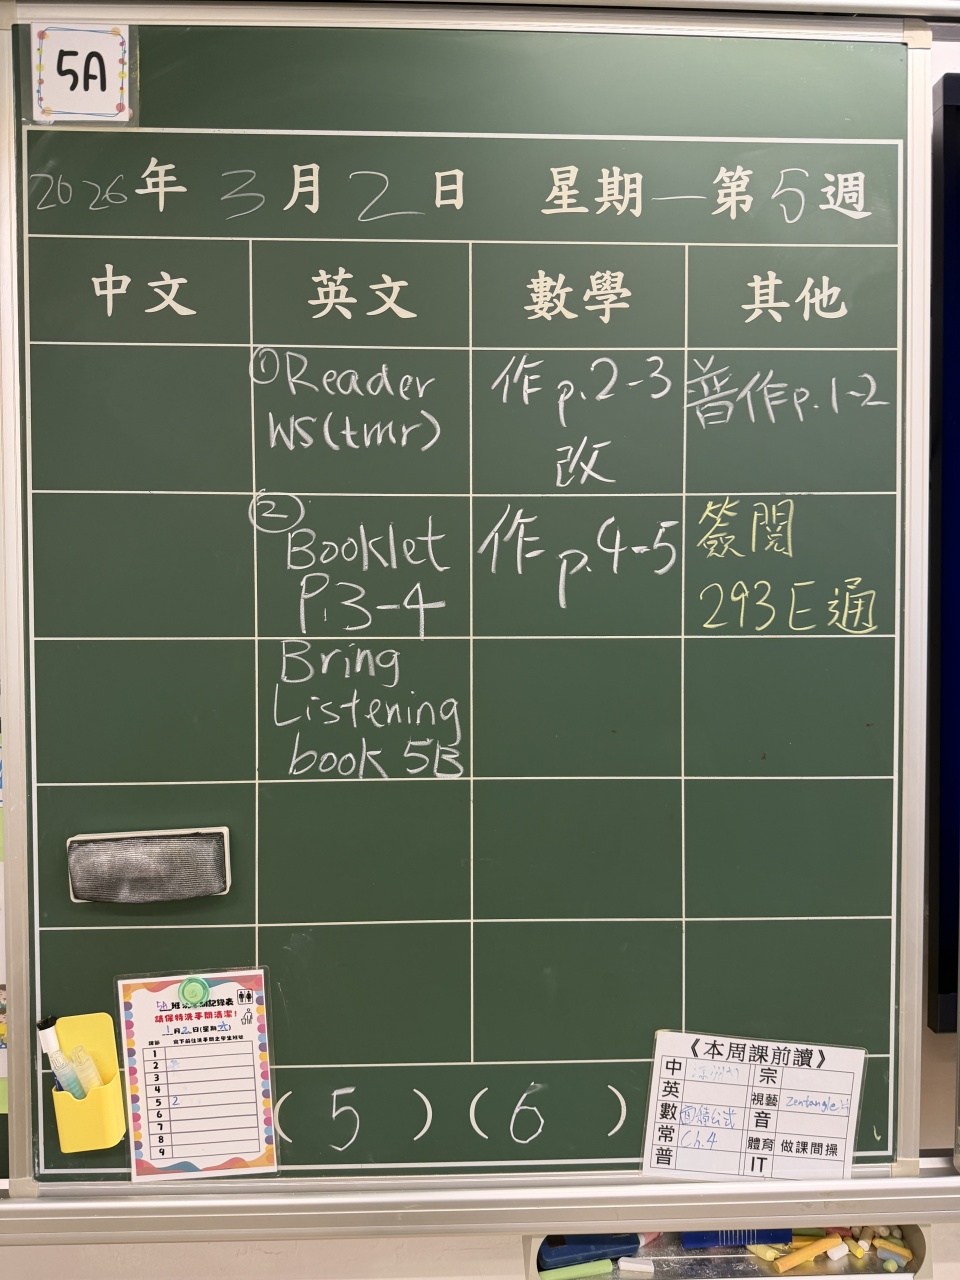 5A
2026年 3月 2日 星期一 第5週
中文 英文 數學 其他
①Reader
WS(tmr)
作p.2-3
改
普作p.1-2
②
Booklet
P.3-4
作p.4-5
簽閱
293E通
Bring
Listening
book 5B
5A班
記錄表
請保持洗手間清潔！
1月2日(星期六)
1
2
3
4
5 2
6
7
8
9
( 5 ) ( 6 )
《本周課前讀》
中
宗
英
視藝 zentangle
數 面積公式
音
常 Ch.4
體育 做課間操
普
IT